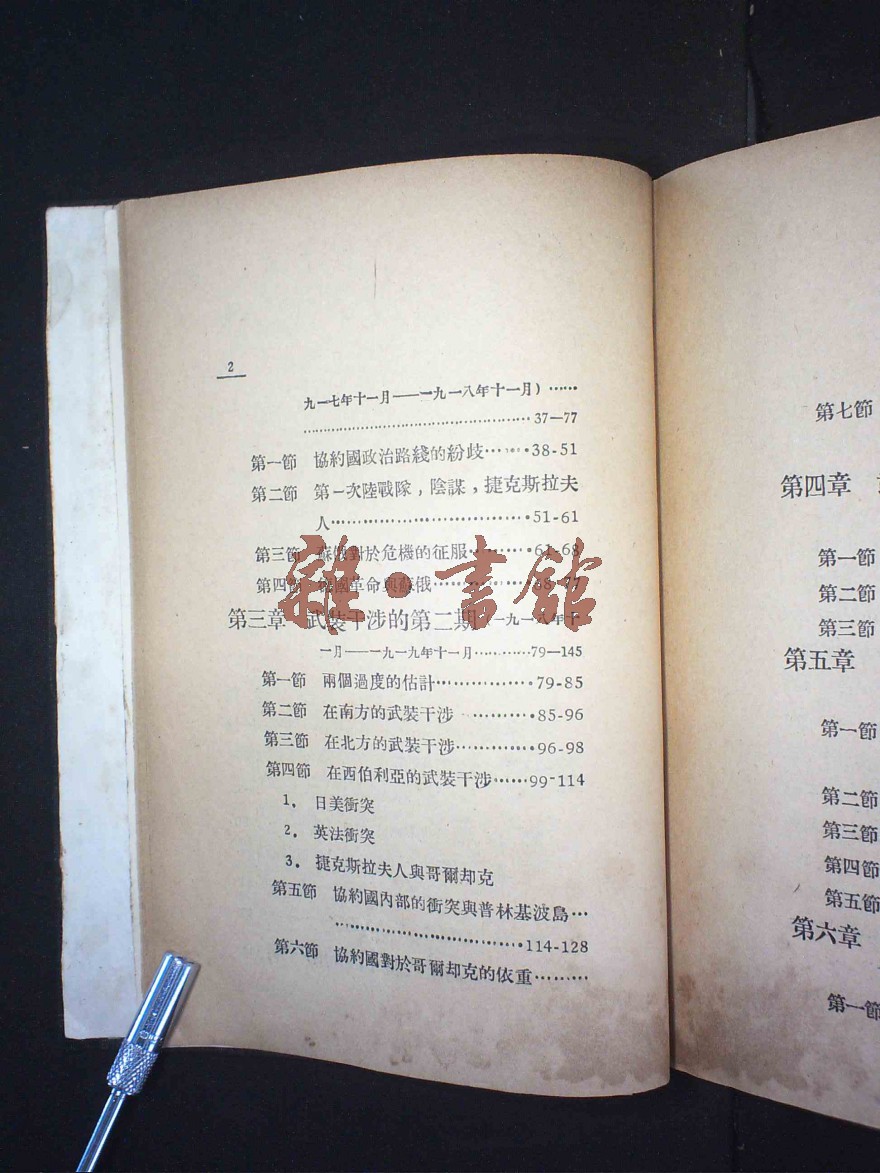 2
九一七年十一月——一九一八年十一月）……
……37—77
第一節 協約國政治路綫的紛歧……38-51
第二節 第一次陸戰隊，陰謀，捷克斯拉夫
人……51-61
第三節 蘇俄對於危機的征服……61-68
第四節 德國革命與蘇俄……68-77
第三章 武裝干涉的第二期（一九一八年十
一月——一九一九年十一月……79—145
第一節 兩個過度的估計……79-85
第二節 在南方的武裝干涉……85-96
第三節 在北方的武裝干涉……96-98
第四節 在西伯利亞的武裝干涉……99-114
1. 日美衝突
2. 英法衝突
3. 捷克斯拉夫人與哥爾却克
第五節 協約國內部的衝突與普林基波島…
……114-128
第六節 協約國對於哥爾却克的依重……
雜·書館
第七節
第四章
第一節
第二節
第三節
第五章
第一節
第二節
第三節
第四節
第五節
第六章
第一節